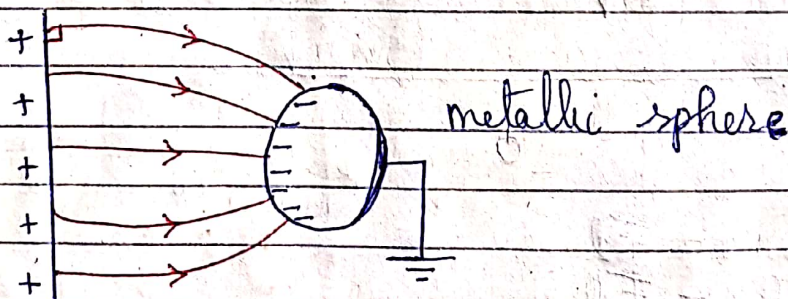 metallic sphere